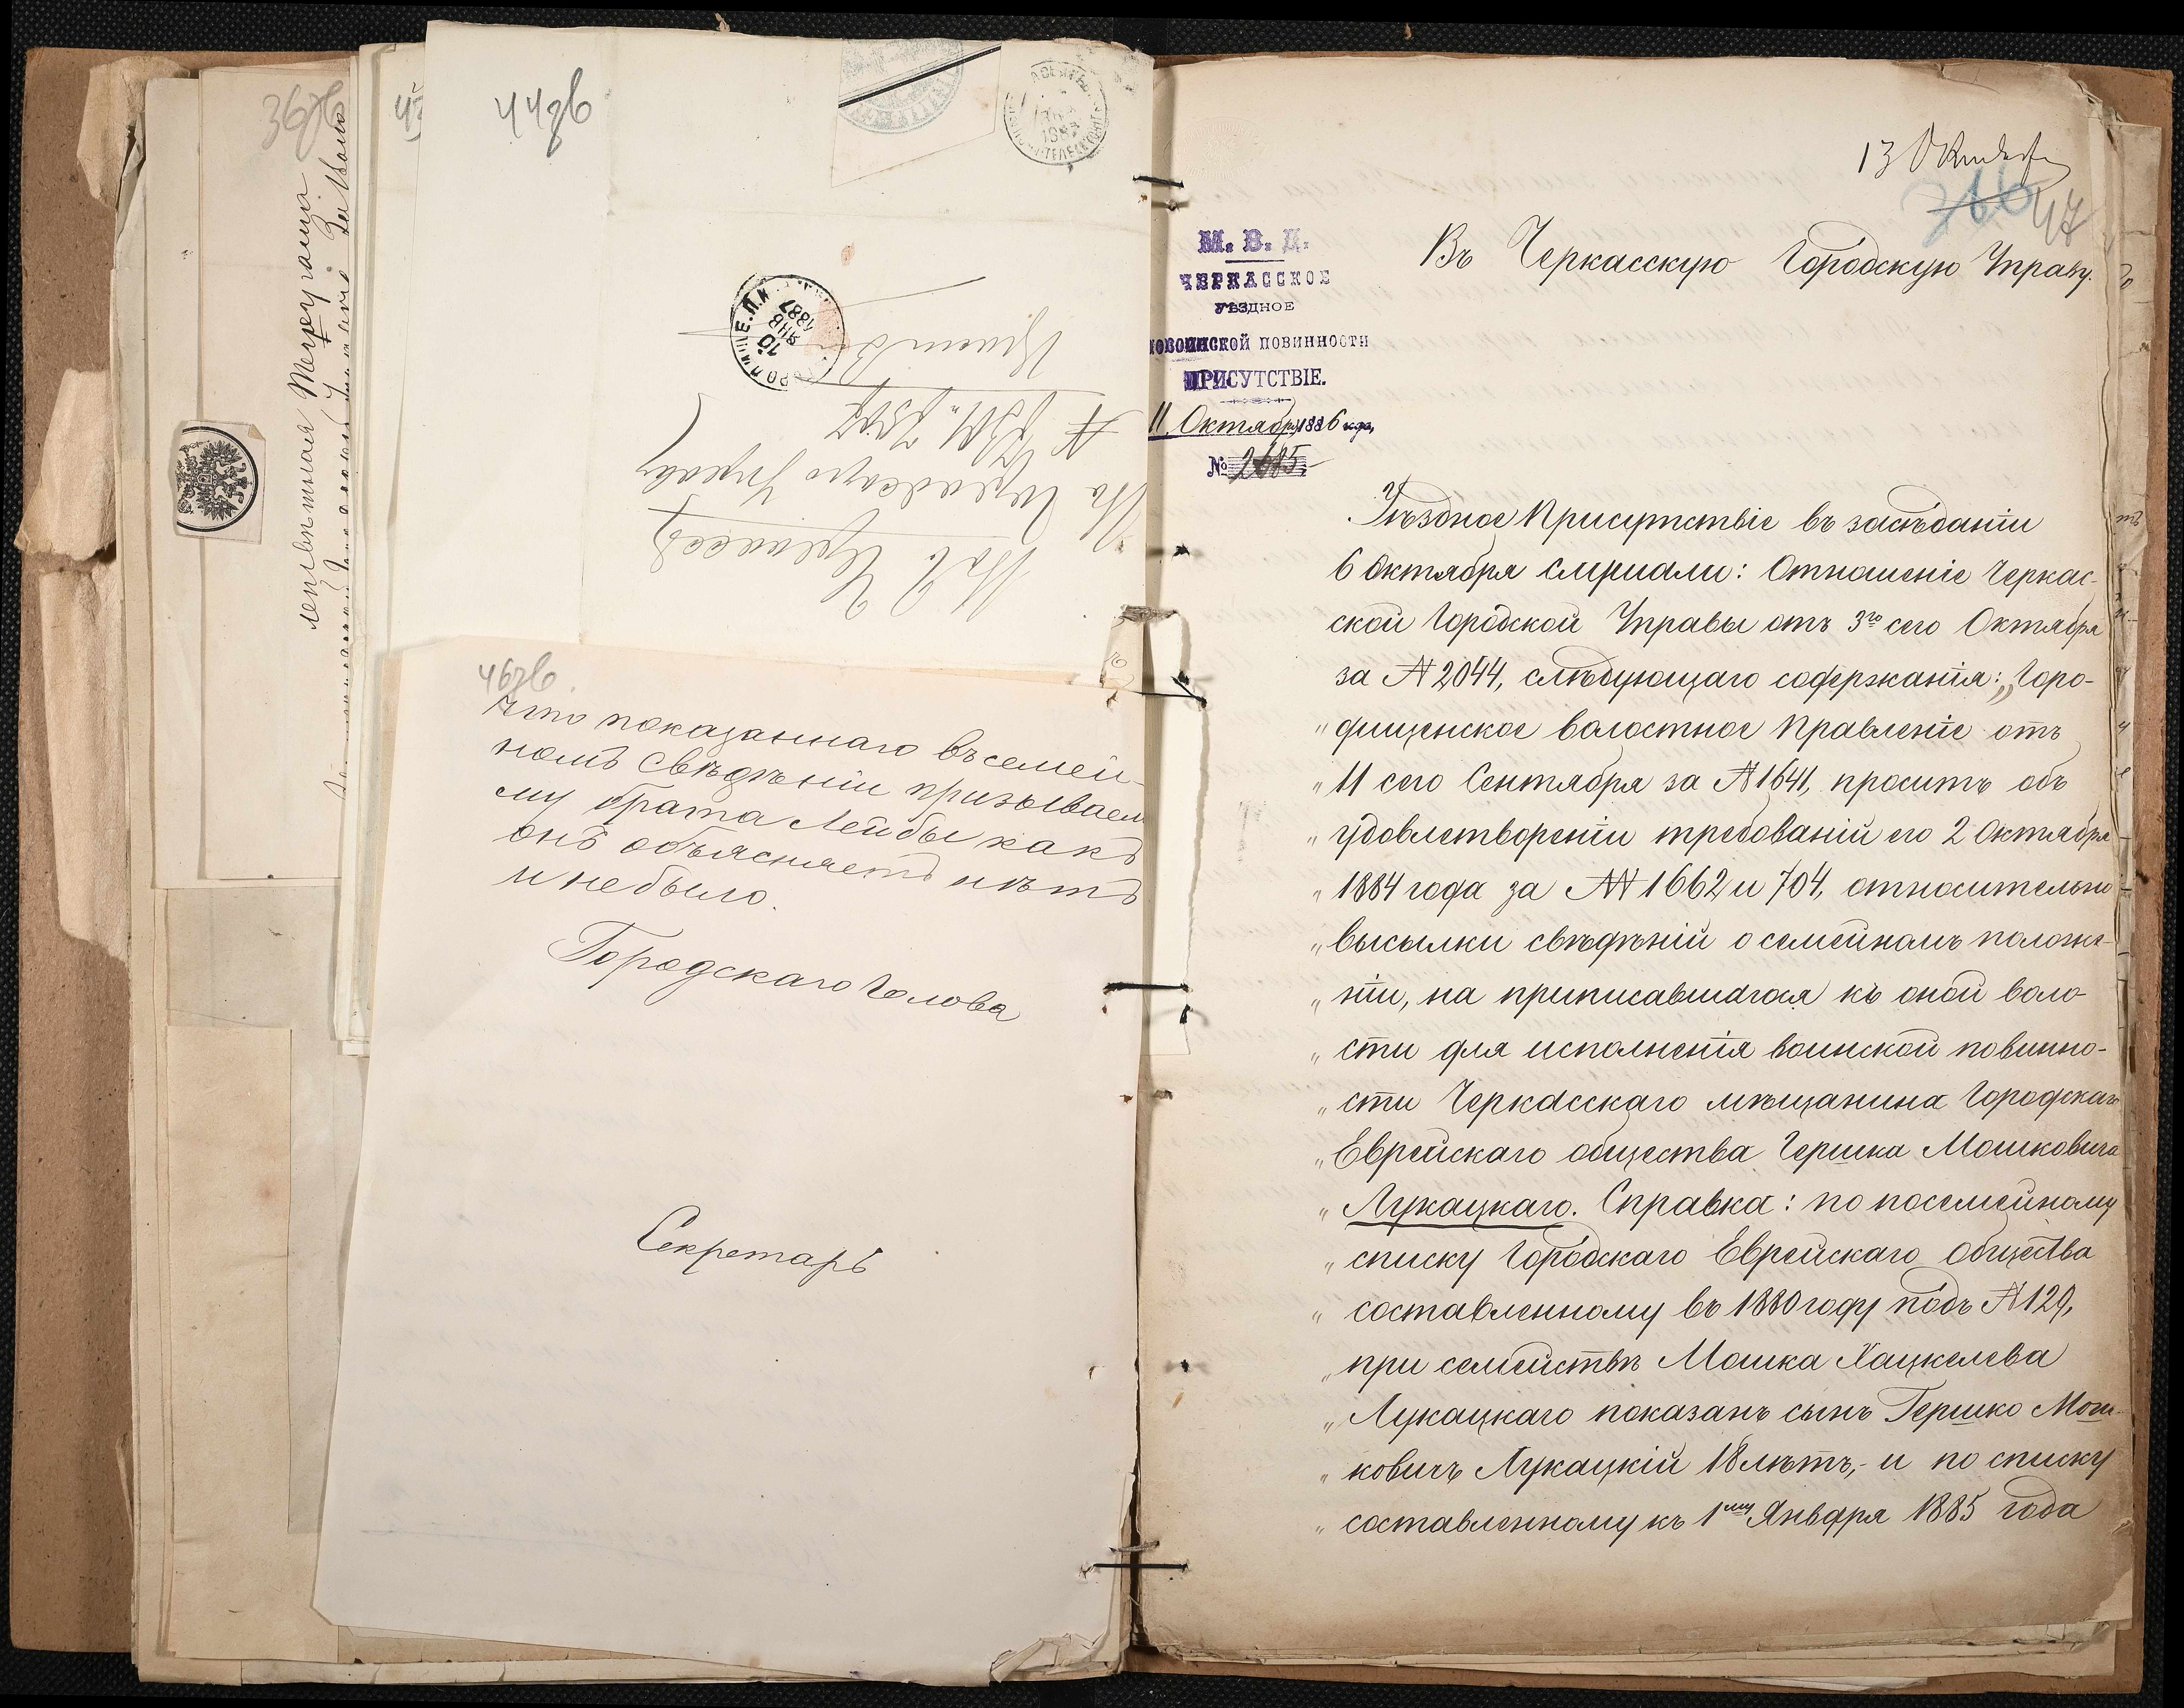 36зв
лепѣятная
43
44зв
10
ЯНВ
1887
Въ г. Черкассы
Въ Городскую Управу
46зв.
что показаннаго въ семей-
номъ свѣдѣніи призываем
му брата Лейбы какъ
онъ объясняетъ нѣтъ
и небыло.
Городскаго Голова
Секретарь
13 Октября
47
М. В. Д.
ЧЕРКАССКОЕ
УѢЗДНОЕ
ПО ВОИНСКОЙ ПОВИННОСТИ
ПРИСУТСТВІЕ.
11 Октября 1886 года,
№ 2685
Въ Черкасскую Городскую Управу.
Уѣздное Присутствіе въ засѣданіи
6 Октября слушали: Отношеніе Черкас-
ской Городской Управы отъ 3го сего Октября
за № 2044, слѣдующаго содержанія: „Горо-
„дищенское волостное Правленіе отъ
„11 сего Сентября за № 1641, проситъ объ
„удовлетвореніи требованій его 2 Октября
„1884 года за №№ 1662 и 704, относительно
„высылки свѣдѣній о семейномъ положе-
„ніи, на приписавшагося къ оной воло-
„сти для исполненія воинской повинно-
„сти Черкасскаго мѣщанина Городскаго
„Еврейскаго общества Гершка Мошковича
„Лукацкаго. Справка: по посемейному
„списку Городскаго Еврейскаго общества
„составленному въ 1880 году подъ № 129,
„при семействѣ Мошка Хацкелева
„Лукацкаго показанъ сынъ Гершко Мош-
„ковичъ Лукацкій 18 лѣтъ,- и по списку
„составленному къ 1му Января 1885 года